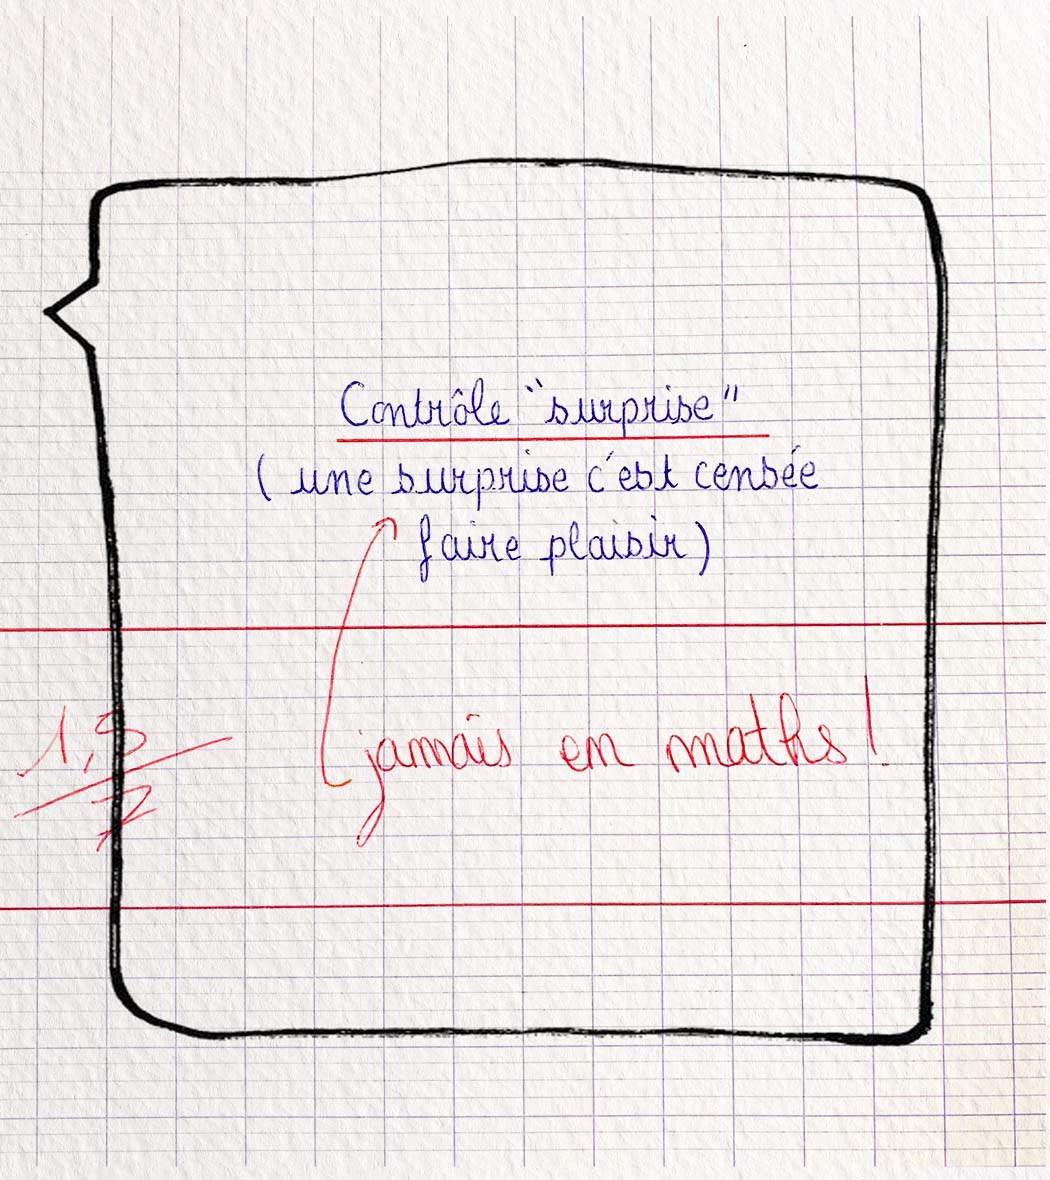 Contrôle "surprise"
(une surprise c'est censée
faire plaisir)
jamais en maths !
1,5
7